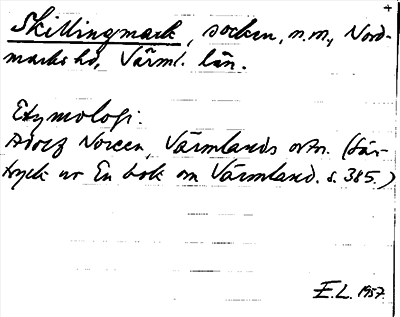 Skillingmark, socken, n.m., Nord-
marks hd, Värml. län.
Etymologi:
Adolf Noreen, Värmlands ortn. (Sär-
tryck ur En bok om Värmland. s. 385.)
E.L. 1957.